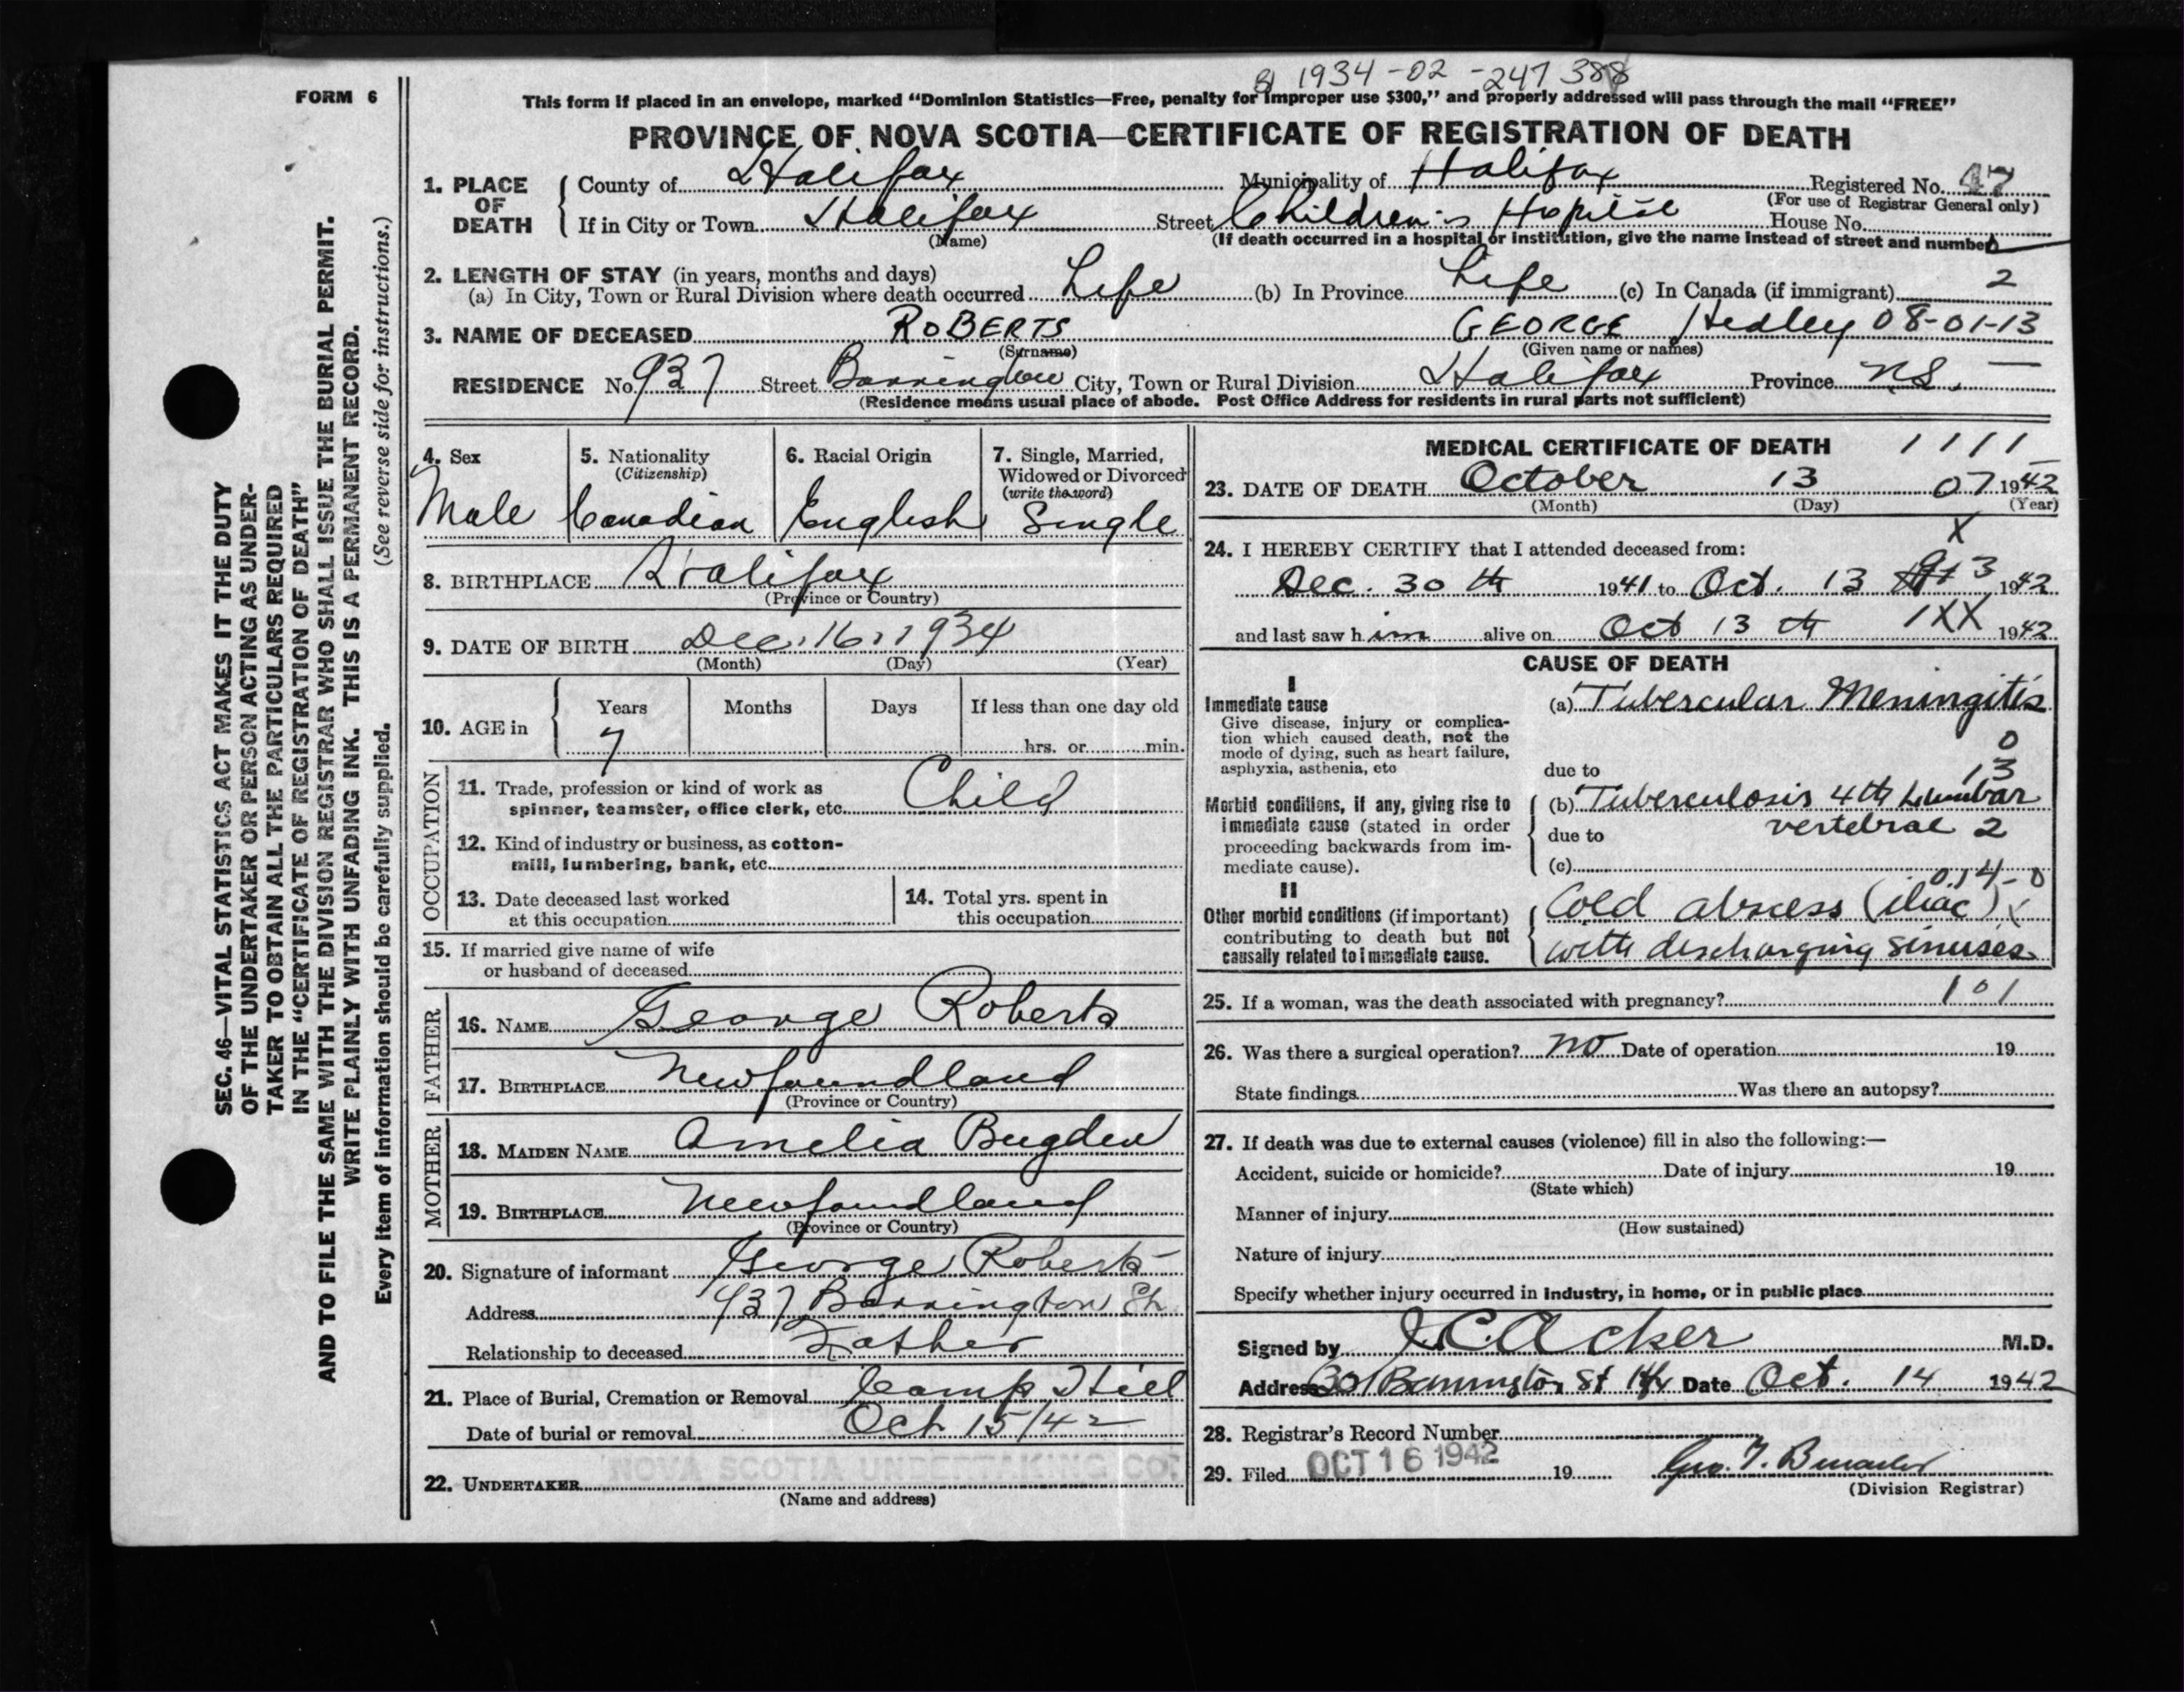 8) 1934-02-247388
FORM 6
This form if placed in an envelope, marked "Dominion Statistics—Free, penalty for improper use $300," and properly addressed will pass through the mail "FREE"
PROVINCE OF NOVA SCOTIA—CERTIFICATE OF REGISTRATION OF DEATH
1. PLACE OF DEATH County of Halifax Municipality of Halifax Registered No. 47
(For use of Registrar General only)
If in City or Town Halifax Street Children's Hopital House No.
(Name) (If death occurred in a hospital or institution, give the name instead of street and number)
2. LENGTH OF STAY (in years, months and days)
(a) In City, Town or Rural Division where death occurred Life (b) In Province Life (c) In Canada (if immigrant) 2
3. NAME OF DECEASED ROBERTS GEORGE Hedley 08-01-13
(Surname) (Given name or names)
RESIDENCE No. 937 Street Barrington City, Town or Rural Division Halifax Province N.S.
(Residence means usual place of abode. Post Office Address for residents in rural parts not sufficient)
4. Sex 5. Nationality 6. Racial Origin 7. Single, Married,
(Citizenship) Widowed or Divorced
(write the word)
Male Canadian English Single
8. BIRTHPLACE Halifax
(Province or Country)
9. DATE OF BIRTH Dec. 16. 1934
(Month) (Day) (Year)
10. AGE in Years Months Days If less than one day old
7 hrs. or min.
OCCUPATION
11. Trade, profession or kind of work as
spinner, teamster, office clerk, etc. Child
12. Kind of industry or business, as cotton-
mill, lumbering, bank, etc.
13. Date deceased last worked
at this occupation
14. Total yrs. spent in
this occupation
15. If married give name of wife
or husband of deceased
FATHER
16. NAME George Roberts
17. BIRTHPLACE Newfoundland
(Province or Country)
MOTHER
18. MAIDEN NAME Amelia Bugden
19. BIRTHPLACE Newfoundland
(Province or Country)
20. Signature of informant George Roberts
Address 937 Barrington St.
Relationship to deceased Father
21. Place of Burial, Cremation or Removal Camp Hill
Date of burial or removal Oct 15/42
22. UNDERTAKER NOVA SCOTIA UNDERTAKING CO.
(Name and address)
MEDICAL CERTIFICATE OF DEATH 1111
23. DATE OF DEATH October 13 07 1942
(Month) (Day) (Year)
X
24. I HEREBY CERTIFY that I attended deceased from:
Dec. 30 th 1941 to Oct. 13 1942
and last saw him alive on Oct 13 th 1XX 1942
CAUSE OF DEATH
I
Immediate cause
Give disease, injury or complica-
tion which caused death, not the
mode of dying, such as heart failure,
asphyxia, asthenia, etc
(a) Tubercular Meningitis
0
due to 13
Morbid conditions, if any, giving rise to
immediate cause (stated in order
proceeding backwards from im-
mediate cause).
(b) Tuberculosis 4th Lumbar
due to vertebrae 2
(c)
014-0
II
Other morbid conditions (if important)
contributing to death but not
causally related to immediate cause.
Cold abscess (iliac)
with discharging sinuses
25. If a woman, was the death associated with pregnancy? 101
26. Was there a surgical operation? no Date of operation 19
State findings Was there an autopsy?
27. If death was due to external causes (violence) fill in also the following:—
Accident, suicide or homicide? Date of injury 19
(State which)
Manner of injury
(How sustained)
Nature of injury
Specify whether injury occurred in Industry, in home, or in public place
Signed by J.C. Acker M.D.
Address 301 Barrington St Hfx Date Oct. 14 1942
28. Registrar's Record Number
29. Filed OCT 16 1942 19
(Division Registrar)
SEC. 46—VITAL STATISTICS ACT MAKES IT THE DUTY
OF THE UNDERTAKER OR PERSON ACTING AS UNDER-
TAKER TO OBTAIN ALL THE PARTICULARS REQUIRED
IN THE "CERTIFICATE OF REGISTRATION OF DEATH"
AND TO FILE THE SAME WITH THE DIVISION REGISTRAR WHO SHALL ISSUE THE BURIAL PERMIT.
WRITE PLAINLY WITH UNFADING INK. THIS IS A PERMANENT RECORD.
Every item of information should be carefully supplied. (See reverse side for instructions.)